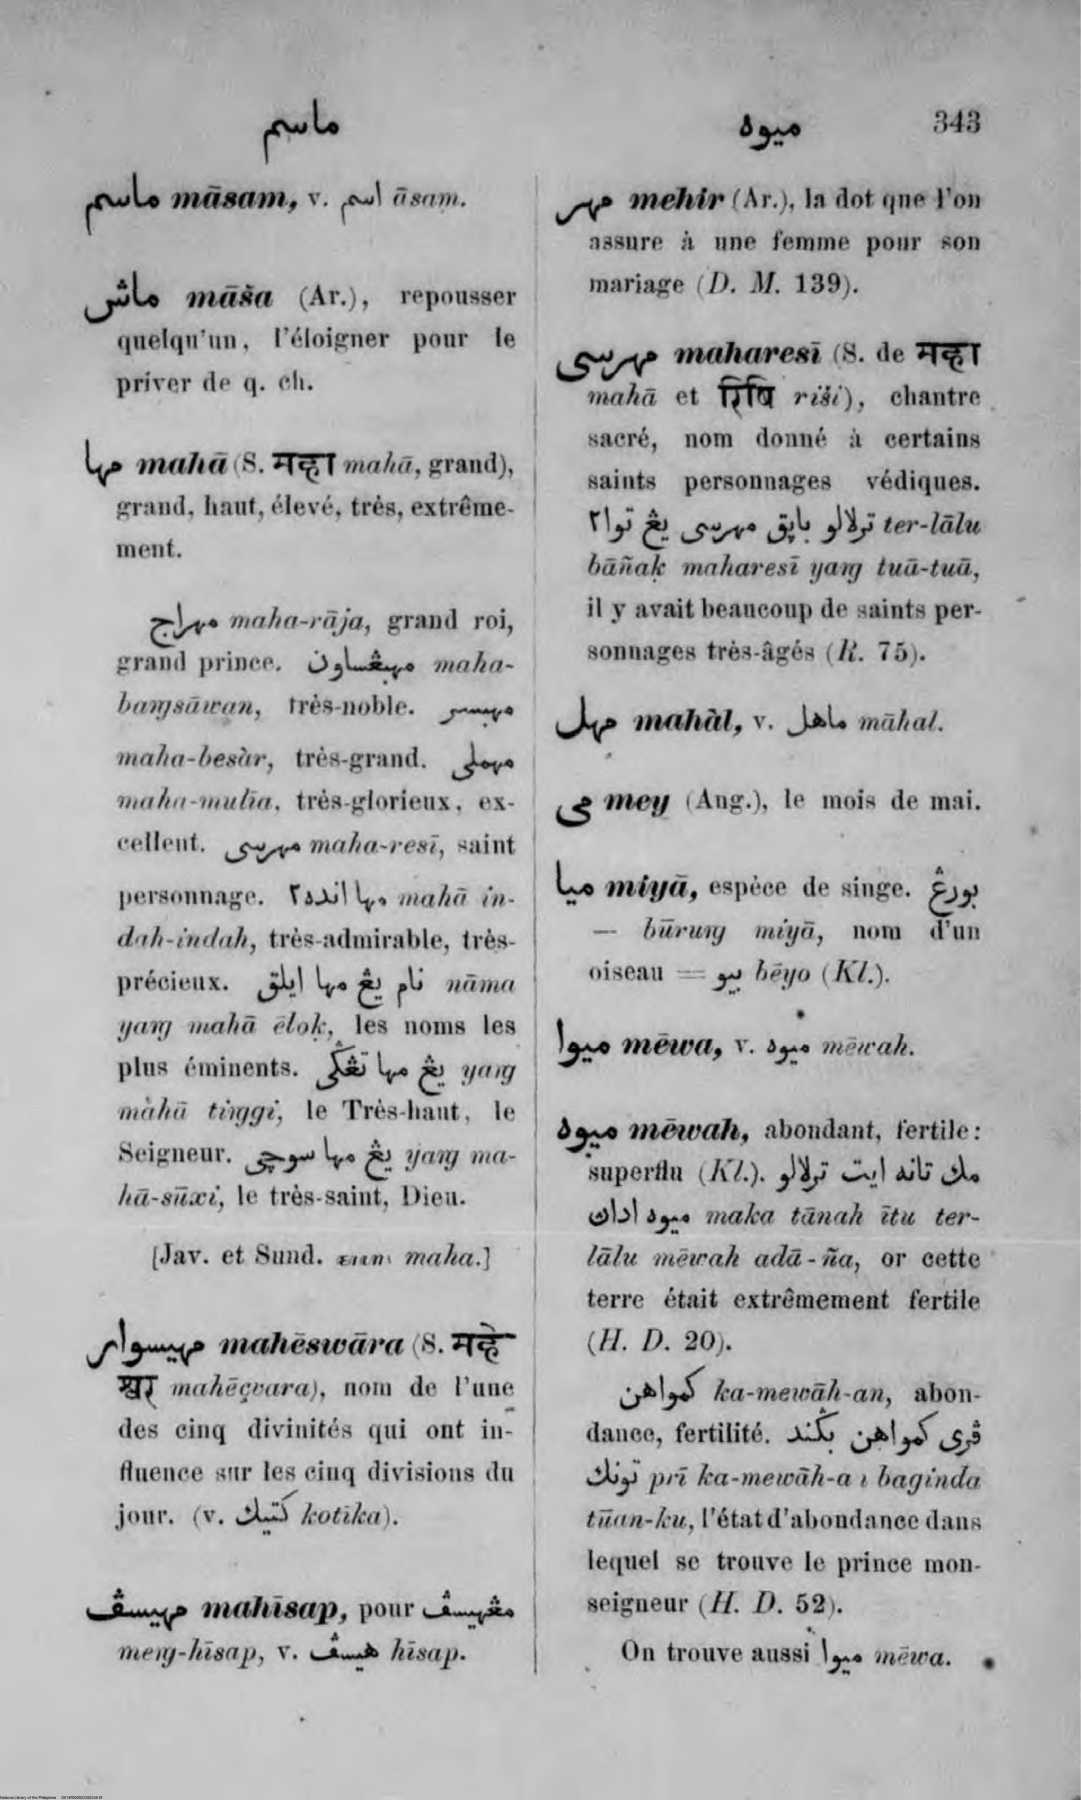 ماسم
ميوه 343
ماسم māsam, v. اسم āsam.
ماش māša (Ar.), repousser
quelqu'un, l'éloigner pour le
priver de q. ch.
مها mahā (S. मव्हा mahā, grand),
grand, haut, élevé, très, extrême-
ment.
مهراج maha-rāja, grand roi,
grand prince. مهبڠساون maha-
baŋsāwan, très-noble. مهبسر
maha-besàr, très-grand. مهملي
maha-mulīa, très-glorieux, ex-
cellent. مهرسى maha-resī, saint
personnage. مها انده٢ mahā in-
dah-indah, très-admirable, très-
précieux. نام يڠ مها ايلق nāma
yaŋ mahā ēloḳ, les noms les
plus éminents. يڠ مها تڠݢى yaŋ
màhā tiŋgi, le Très-haut, le
Seigneur. يڠ مها سوچى yaŋ ma-
hā-sūxi, le très-saint, Dieu.
[Jav. et Sund. maha.]
مهيسوار mahēswāra (S. मव्हे
श्वर mahēçvara), nom de l'une
des cinq divinités qui ont in-
fluence sur les cinq divisions du
jour. (v. كتيك kotīka).
مهيسڤ mahīsap, pour مڠهيسڤ
meŋ-hīsap, v. هيسڤ hīsap.
مهر mehir (Ar.), la dot que l'on
assure à une femme pour son
mariage (D. M. 139).
مهرسى maharesī (S. de मव्हा
mahā et रिषि riši), chantre
sacré, nom donné à certains
saints personnages védiques.
ترلالو باڽق مهرسى يڠ توا٢ ter-lālu
bāñaḳ maharesī yaŋ tuā-tuā,
il y avait beaucoup de saints per-
sonnages très-âgés (R. 75).
مهل mahàl, v. ماهل māhal.
مى mey (Ang.), le mois de mai.
ميا miyā, espèce de singe. بورڠ
— būruŋ miyā, nom d'un
oiseau = بيو bēyo (Kl.).
ميوا mēwa, v. ميوه mēwah.
ميوه mēwah, abondant, fertile:
superflu (Kl.). مك تانه ايت ترلالو
ميوه اداڽ maka tānah ītu ter-
lālu mēwah adā-ña, or cette
terre était extrêmement fertile
(H. D. 20).
كمواهن ka-mewāh-an, abon-
dance, fertilité. ڤرى كمواهن بݢند
تونك prī ka-mewāh-a ı baginda
tūan-ku, l'état d'abondance dans
lequel se trouve le prince mon-
seigneur (H. D. 52).
On trouve aussi ميوا mēwa.